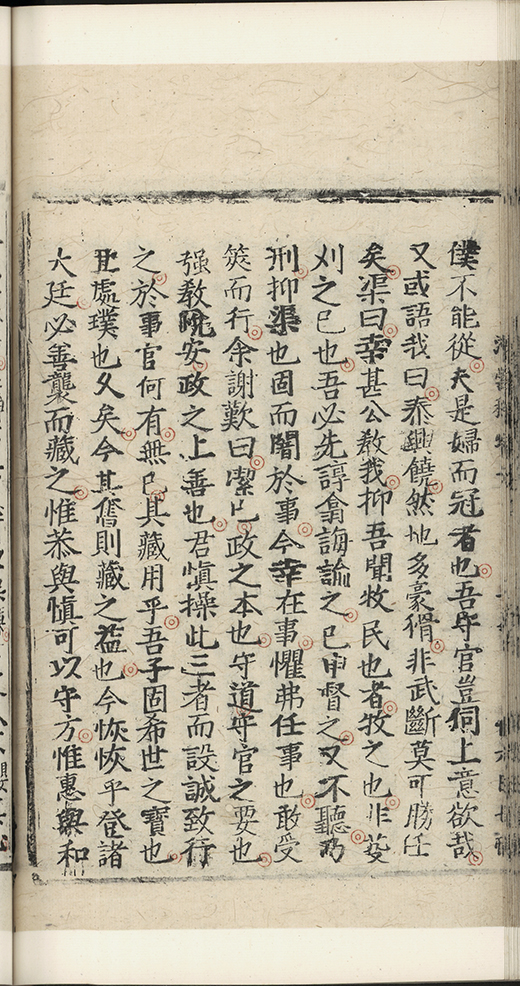 僕不能從夫是婦而冠者也吾守官豈伺上意欲哉
又或語我曰泰興饒然地多豪猾非武斷莫可勝任
矣渠曰幸甚公敎我抑吾聞牧民也者牧之也非芟
刈之已也吾必先諄翕誨諭之已申督之又不聽乃
刑抑渠也固而闇於事今幸在事懼弗任事也敢受
筴而行余謝歎曰潔已政之本也守道守官之要也
强敎陁安政之上善也君愼操此三者而設誠致行
之於事官何有無已其藏用乎吾子固希世之寶也
丑處璞也久矣今其奮則藏之益也今恢恢乎登諸
大廷必善襲而藏之惟恭與愼可以守方惟惠與和